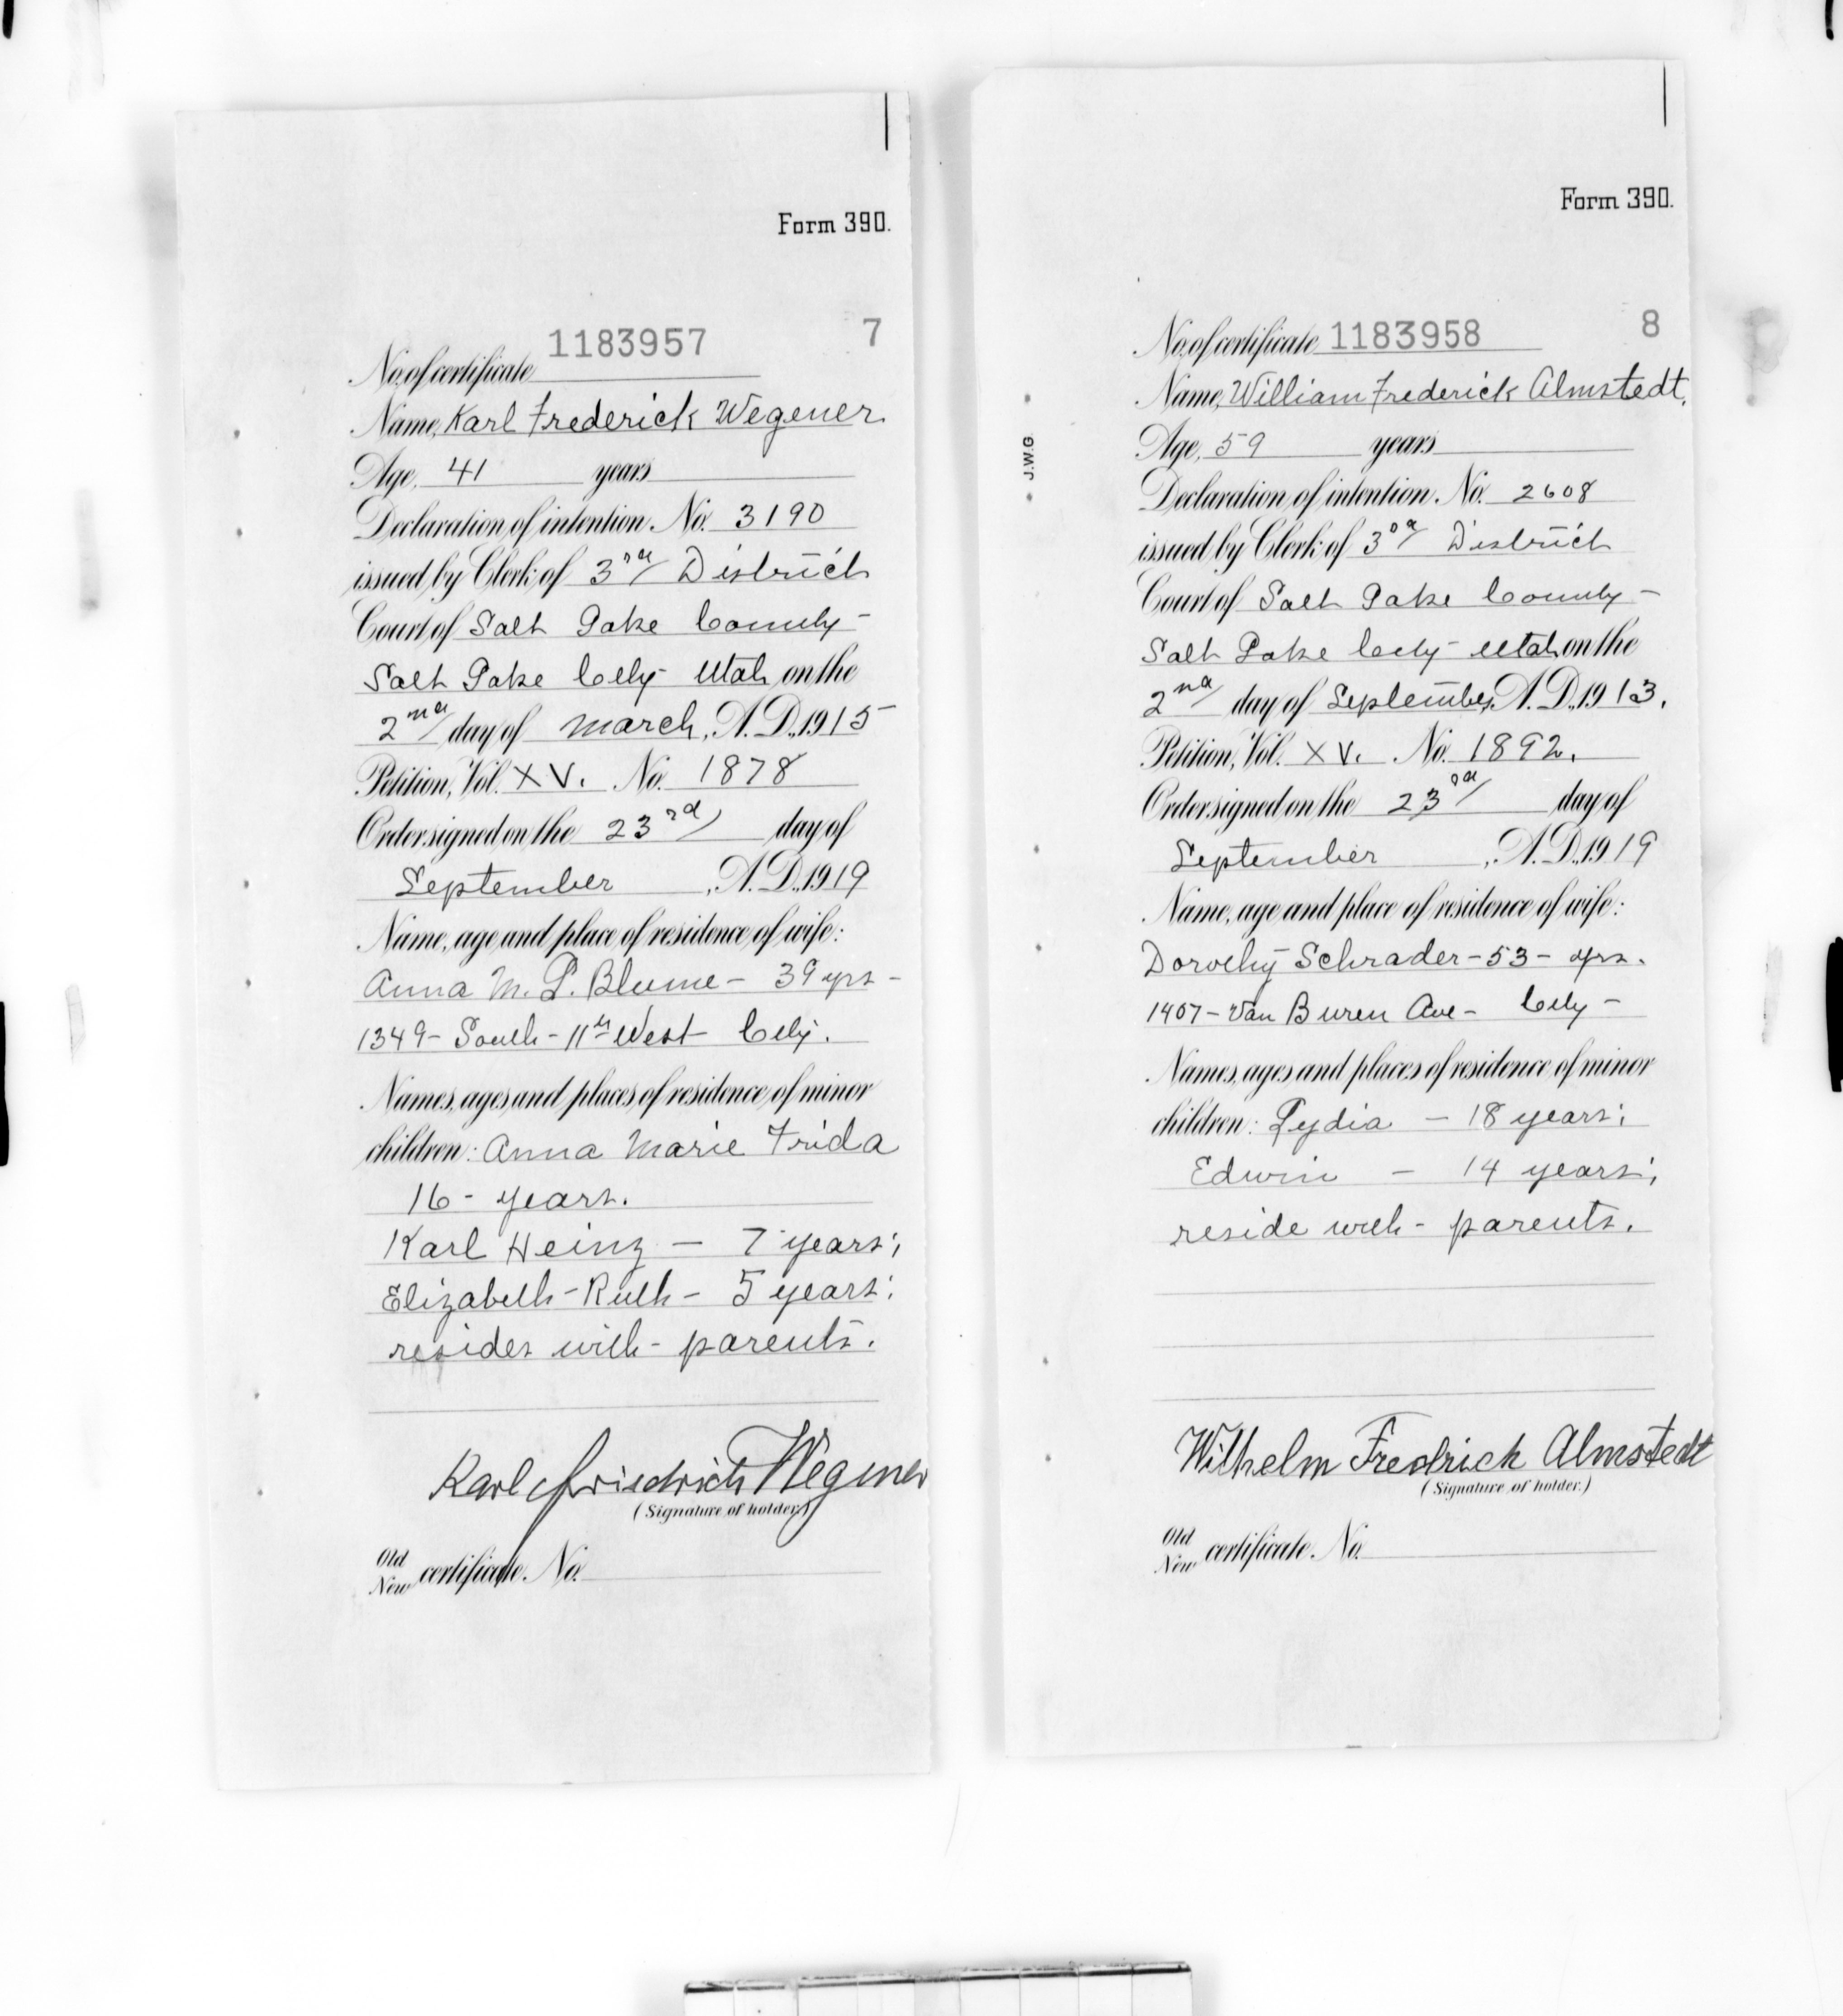 Form 390.
1183957 7
No. of certificate
Name, Karl Frederick Wegener
Age, 41 years
Declaration of intention No. 3190
issued by Clerk of 3rd District
Court of Salt Lake County-
Salt Lake City Utah on the
2nd day of March, A.D., 1915
Petition, Vol. XV. No. 1878
Order signed on the 23rd day of
September , A.D., 1919
Name, age and place of residence of wife:
Anna M. L. Blume - 39 yrs -
1349 - South - 11th West City.
Names, ages and places of residence of minor
children: Anna Marie Frida
16 - years.
Karl Heinz — 7 years;
Elizabeth - Ruth - 5 years;
resides with - parents.
Karl Friedrich Wegener
(Signature of holder)
Old
New certificate No.
Form 390.
J.W.G.
8
No. of certificate 1183958
Name, William Frederick Almstedt.
Age, 59 years
Declaration of intention No. 2608
issued by Clerk of 3rd District
Court of Salt Lake County -
Salt Lake City - Utah on the
2nd day of September, A.D., 1913.
Petition, Vol. XV. No. 1892.
Order signed on the 23rd day of
September , A.D., 1919
Name, age and place of residence of wife:
Dorothy Schrader - 53 - yrs.
1407 - Van Buren Ave - City -
Names, ages and places of residence of minor
children: Lydia — 18 years;
Edwin — 14 years;
reside with - parents.
Wilhelm Fredrick Almstedt
(Signature of holder.)
Old
New certificate No.